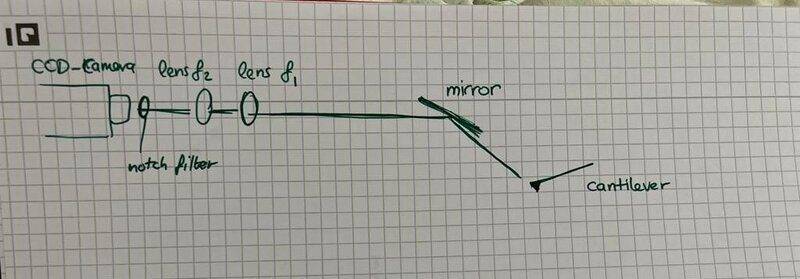 IQ
CCD-Kamera
lens f₂
lens f₁
mirror
notch filter
cantilever